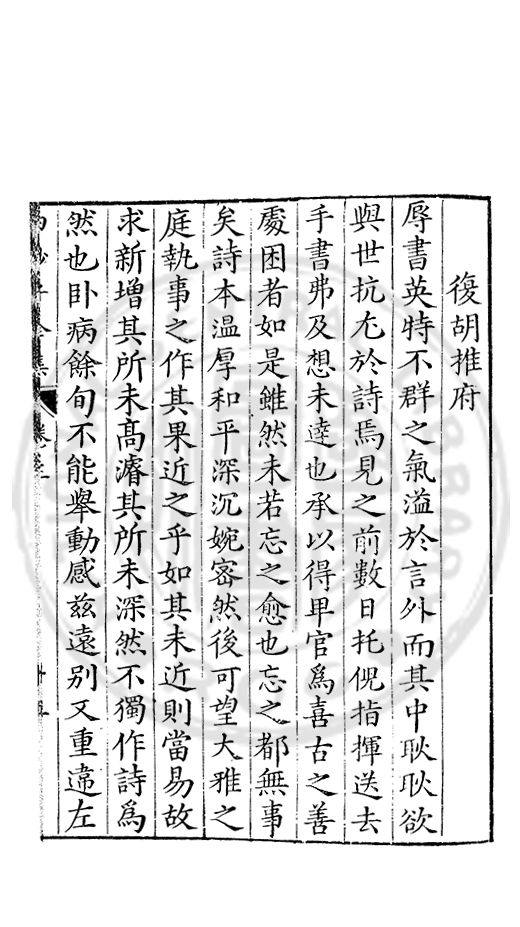 復胡推府
辱書英特不群之氣溢於言外而其中耿耿欲
與世抗尤於詩焉見之前數日托倪指揮送去
手書弗及想未達也承以得卑官為喜古之善
處困者如是雖然未若忘之愈也忘之都無事
矣詩本温厚和平深沉婉宻然後可望大雅之
庭執事之作其果近之乎如其未近則當易故
求新增其所未高濬其所未深然不獨作詩為
然也卧病餘旬不能舉動感兹遠别又重違左